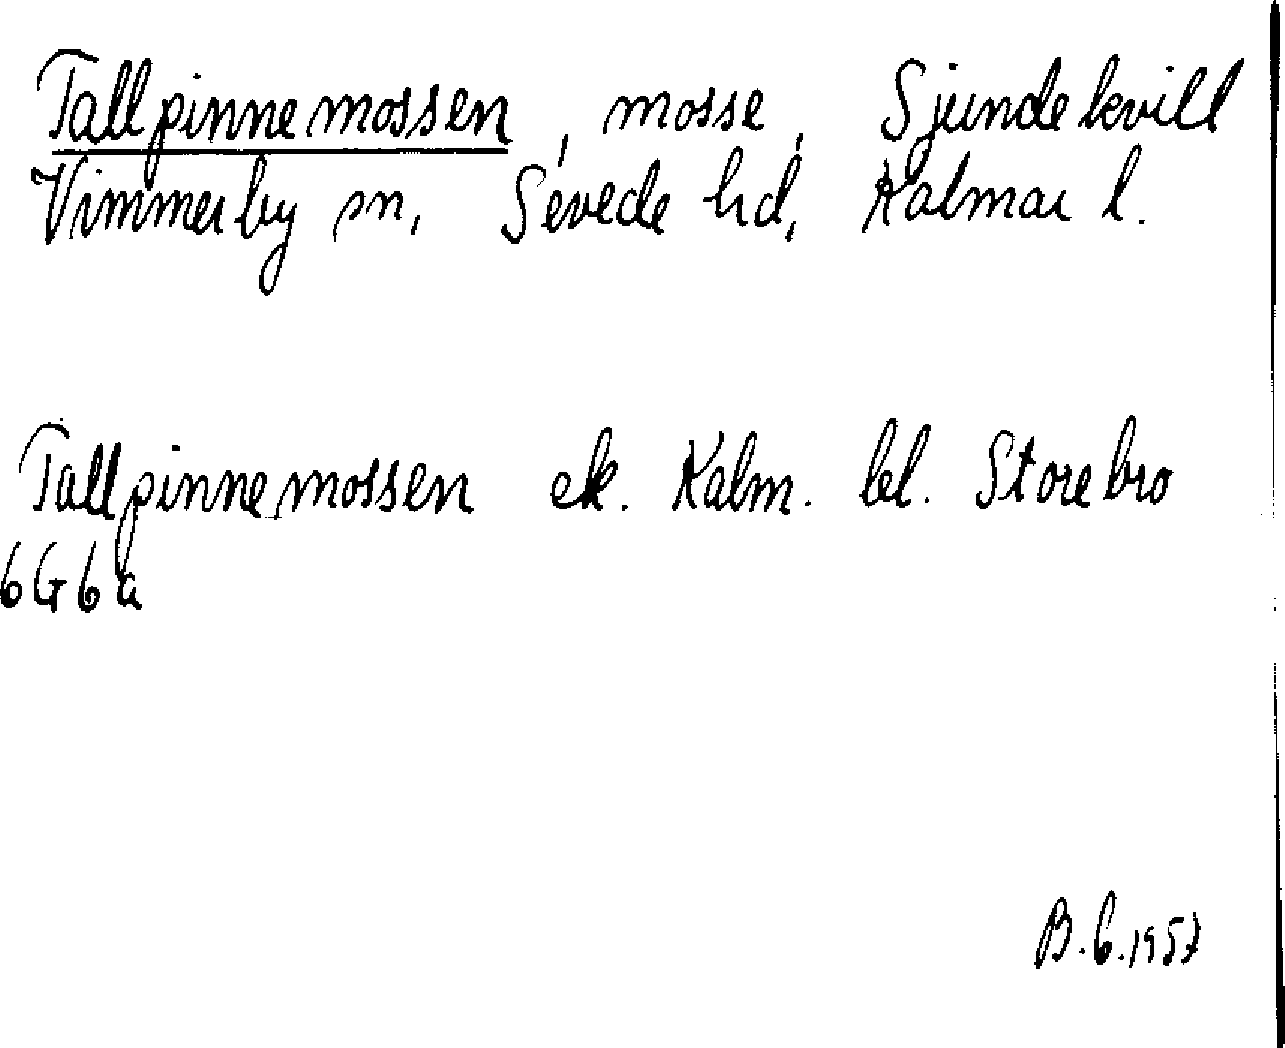 Tallpinnemossen, mosse, Sjundekvill
Vimmerby sn, Sevede hd, Kalmar l.
Tallpinnemossen ek. Kalm. bl. Storebro
6G6a
B.6.1957